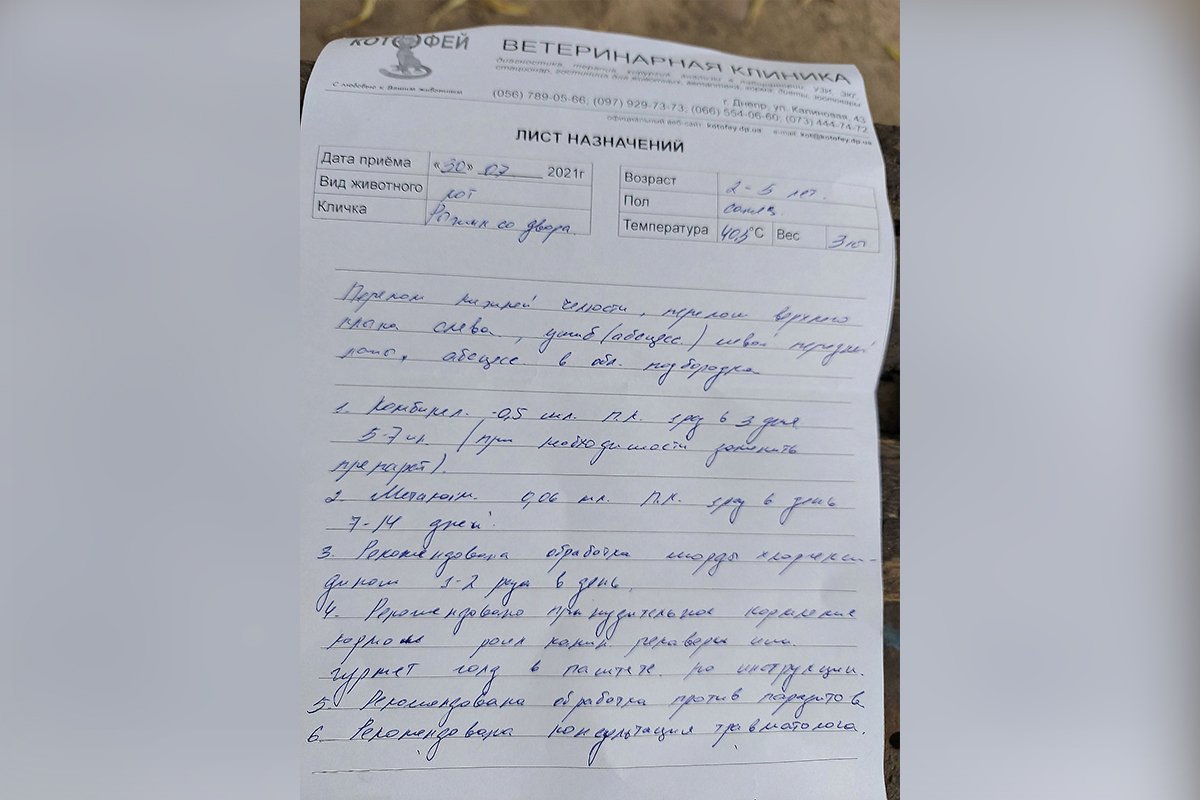 КОТОФЕЙ
С любовью к Вашим животным
ВЕТЕРИНАРНАЯ КЛИНИКА
диагностика, терапия, хирургия, анализы в лаборатории, УЗИ, ЭКГ,
стационар, гостиница для животных, ветаптека, корма, диеты, зоотовары
г. Днепр, ул. Калиновая, 43
(056) 789-05-66; (097) 929-73-73; (066) 554-06-60; (073) 444-74-72
официальный веб-сайт: kotofey.dp.ua e-mail: kot@kotofey.dp.ua
ЛИСТ НАЗНАЧЕНИЙ
Дата приёма «30» 07 2021г
Вид животного кот
Кличка Рыжик со двора.
Возраст 2-5 лет.
Пол самец
Температура 40,5 °C Вес 3 кг
Перелом нижней челюсти, перелом верхнего
клыка слева, ушиб (абсцесс.) левой передней
лапы, абсцесс в обл. подбородка
1. Комбикел. -0,5 мл. П.К. 1 раз в 3 дня
5-7 ин. (при необходимости заменить
препарат).
2. Метакам. 0,06 мл. П.К. 1 раз в день
7-14 дней.
3. Рекомендована обработка морды хлоргекси-
дином 1-2 раза в день.
4. Рекомендовано принудительное кормление
кормом роял канин рекавери или
гурмет голд в паштете по инструкции.
5. Рекомендована обработка против паразитов
6. Рекомендована консультация травматолога.